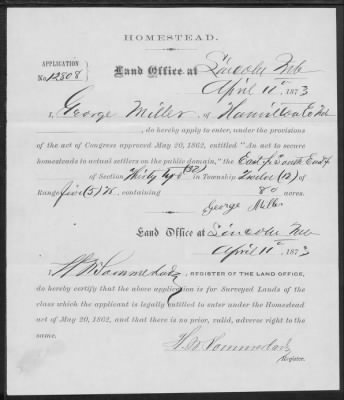 HOMESTEAD.
APPLICATION
No. 12808
Land Office at Lincoln Neb
April 11th 1873
I, George Miller, of Hamilton Co Neb
, do hereby apply to enter, under the provisions
of the act of Congress approved May 20, 1862, entitled "An act to secure
homesteads to actual settlers on the public domain," the East ½ South East ¼
of Section Thirty two (32) in Township Twelve (12) of
Range five (5) W, containing 80 acres.
George Miller
Land Office at Lincoln Neb
April 11th 1873
I, REGISTER OF THE LAND OFFICE,
do hereby certify that the above application is for Surveyed Lands of the
class which the applicant is legally entitled to enter under the Homestead
act of May 20, 1862, and that there is no prior, valid, adverse right to the
same.
Register.